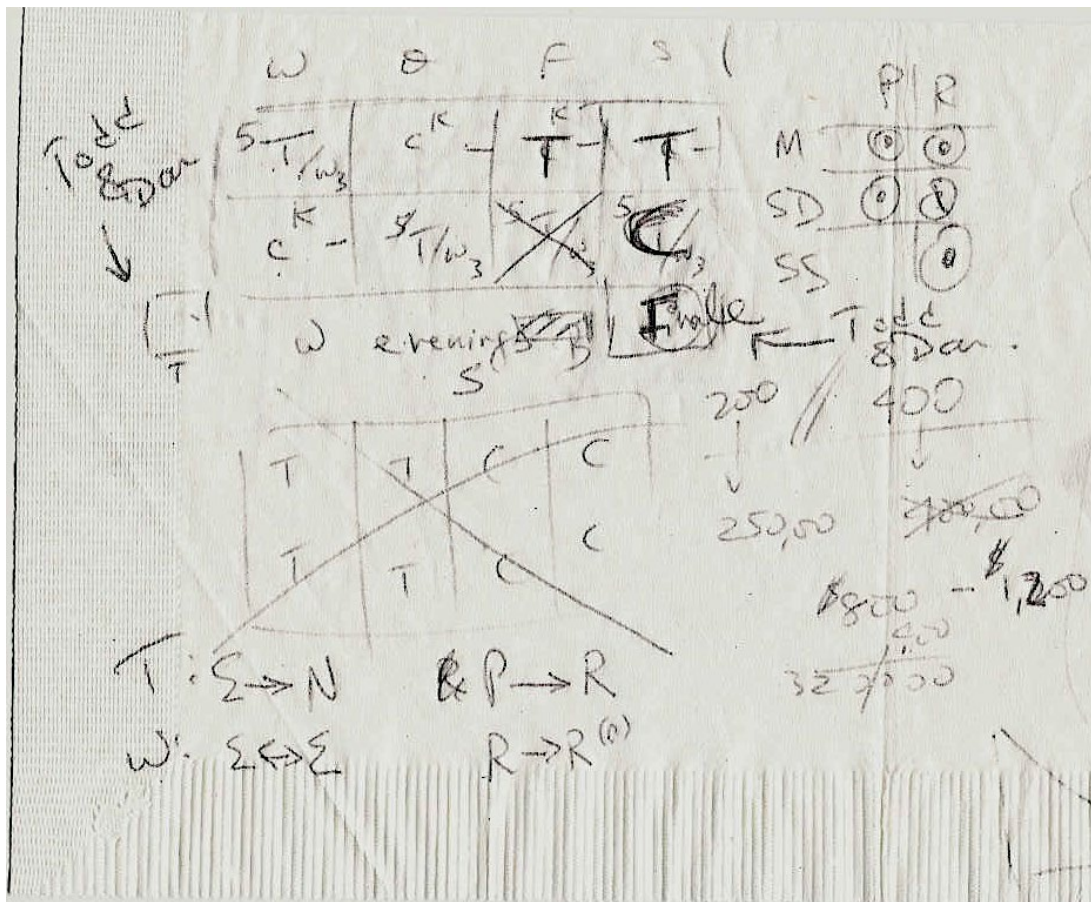 W Θ F S
P R
Todd
& Dan
5 T/W3 | C^K – | T^K – | T –
M
C^K – | 5 T/W3 | 5 T/W3 | 5 T/W3
SD
SS
T
W evenings
Finale
Todd
& Dan.
S
200 // 400
T T C C
250,00
T T C C
$800 – $1,200
400
T: Σ→N & P→R
W: Σ↔Σ R→R^(n)